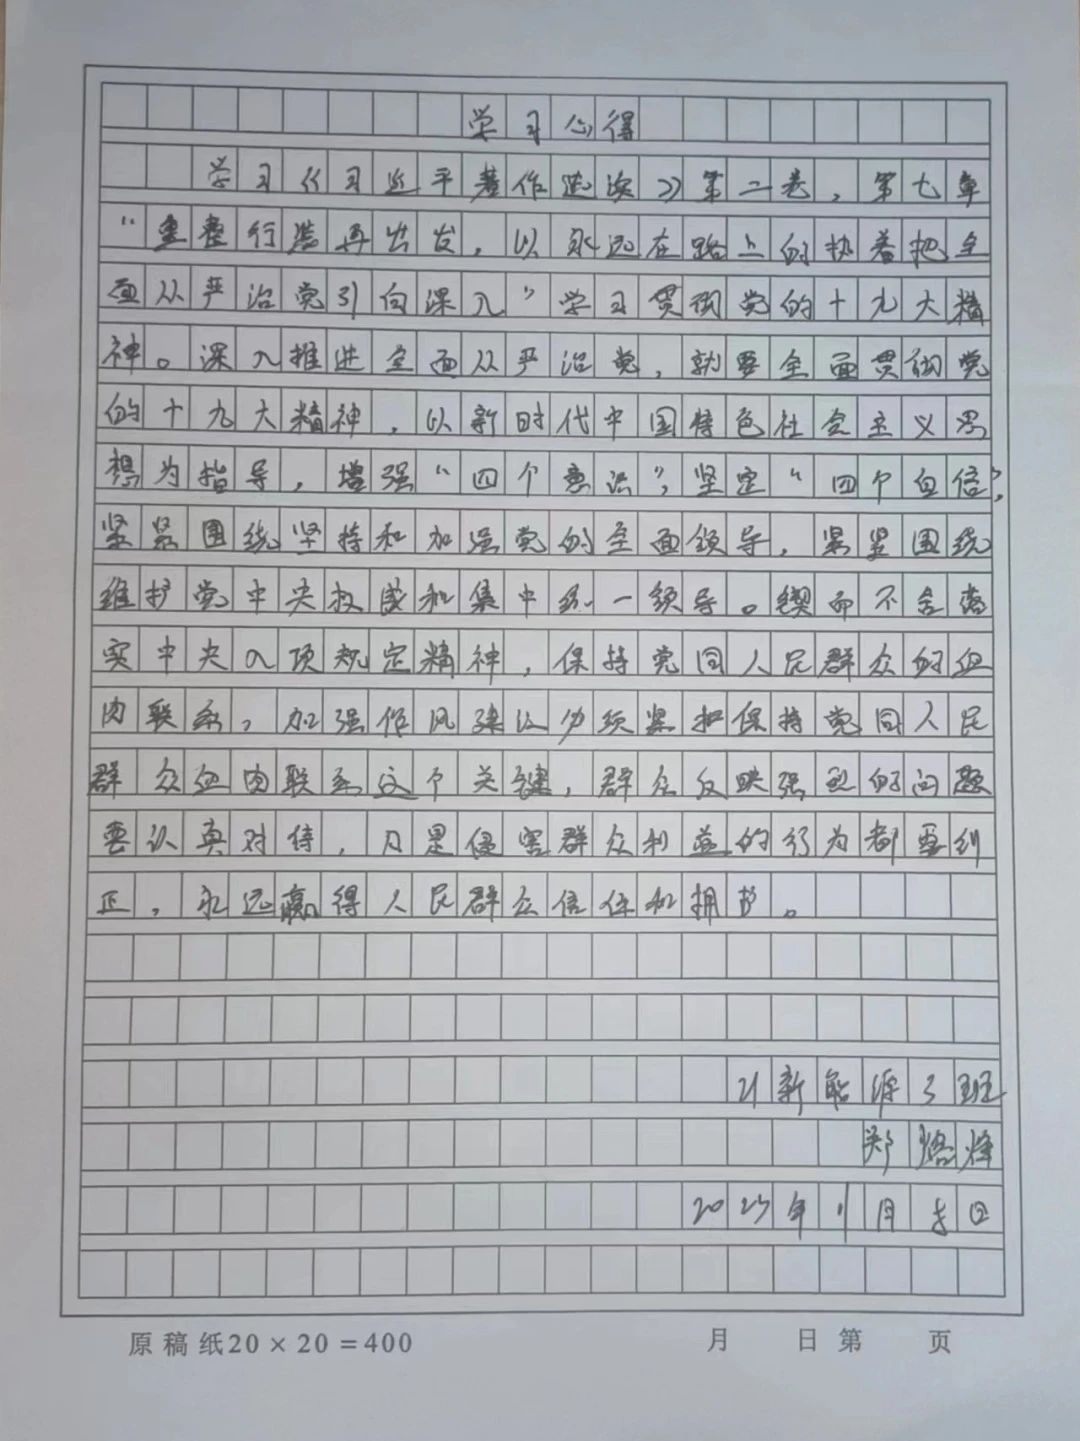 学习心得
学习《习近平著作选读》第二卷，第七章
“重整行装再出发，以永远在路上的执着把全
面从严治党引向深入”学习贯彻党的十九大精
神。深入推进全面从严治党，就要全面贯彻党
的十九大精神，以新时代中国特色社会主义思
想为指导，增强“四个意识”，坚定“四个自信”，
紧紧围绕坚持和加强党的全面领导，紧紧围绕
维护党中央权威和集中统一领导。锲而不舍落
实中央八项规定精神，保持党同人民群众的血
肉联系，加强作风建设必须紧扣保持党同人民
群众血肉联系这个关键，群众反映强烈的问题
要认真对待，凡是侵害群众利益的行为都要纠
正，永远赢得人民群众信任和拥护。
21新能源3班
郑烽
2023年11月日
原稿纸20×20=400 月 日第 页